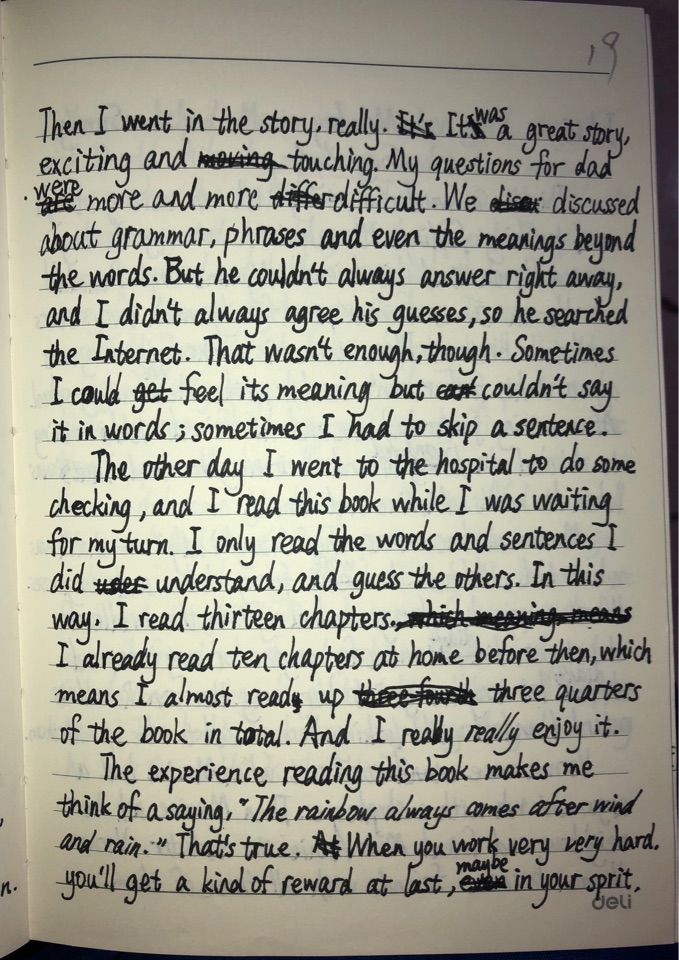 19
Then I went in the story, really. It was a great story,
exciting and touching. My questions for dad
were more and more difficult. We discussed
about grammar, phrases and even the meanings beyond
the words. But he couldn't always answer right away,
and I didn't always agree his guesses, so he searched
the Internet. That wasn't enough, though. Sometimes
I could feel its meaning but couldn't say
it in words; sometimes I had to skip a sentence.
The other day I went to the hospital to do some
checking, and I read this book while I was waiting
for my turn. I only read the words and sentences I
did understand, and guess the others. In this
way. I read thirteen chapters.
I already read ten chapters at home before then, which
means I almost read up three quarters
of the book in total. And I really really enjoy it.
The experience reading this book makes me
think of a saying, "The rainbow always comes after wind
and rain." That's true. When you work very very hard.
n. you'll get a kind of reward at last, maybe in your sprit,
deli